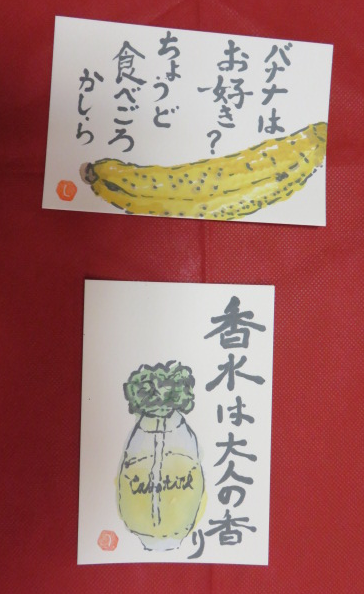 バナナは
お好き？
ちょうど
食べごろ
かしら
香水は大人の香り
Cabotine